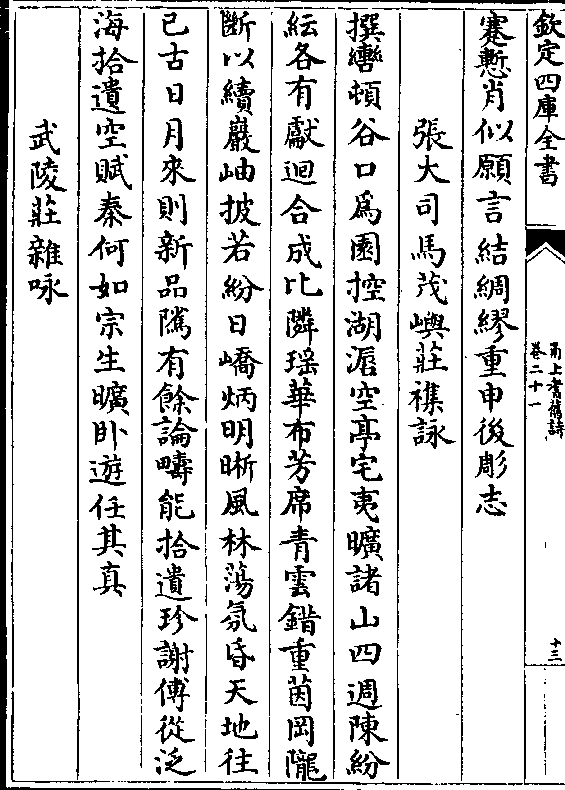 欽定四庫全書
甬上耆舊詩
卷二十一
十三
蹇慙肖似願言結綢繆重申後彫志
張大司馬茂嶼莊襍詠
撰轡頓谷口為園控湖漘空亭宅夷曠諸山四週陳紛
紜各有獻迴合成比隣瑶華布芳席青雲錯重茵岡隴
斷以續巖岫披若紛日嶠炳明晰風林蕩氛昏天地往
已古日月來則新品隲有餘論疇能拾遺珍謝傅從泛
海拾遺空賦秦何如宗生曠卧遊任其真
武陵莊雜咏